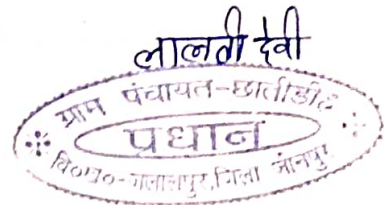 लालती देवी
ग्राम पंचायत-छातीडीह
प्रधान
वि०ख०-जलालपुर, जिला जौनपुर